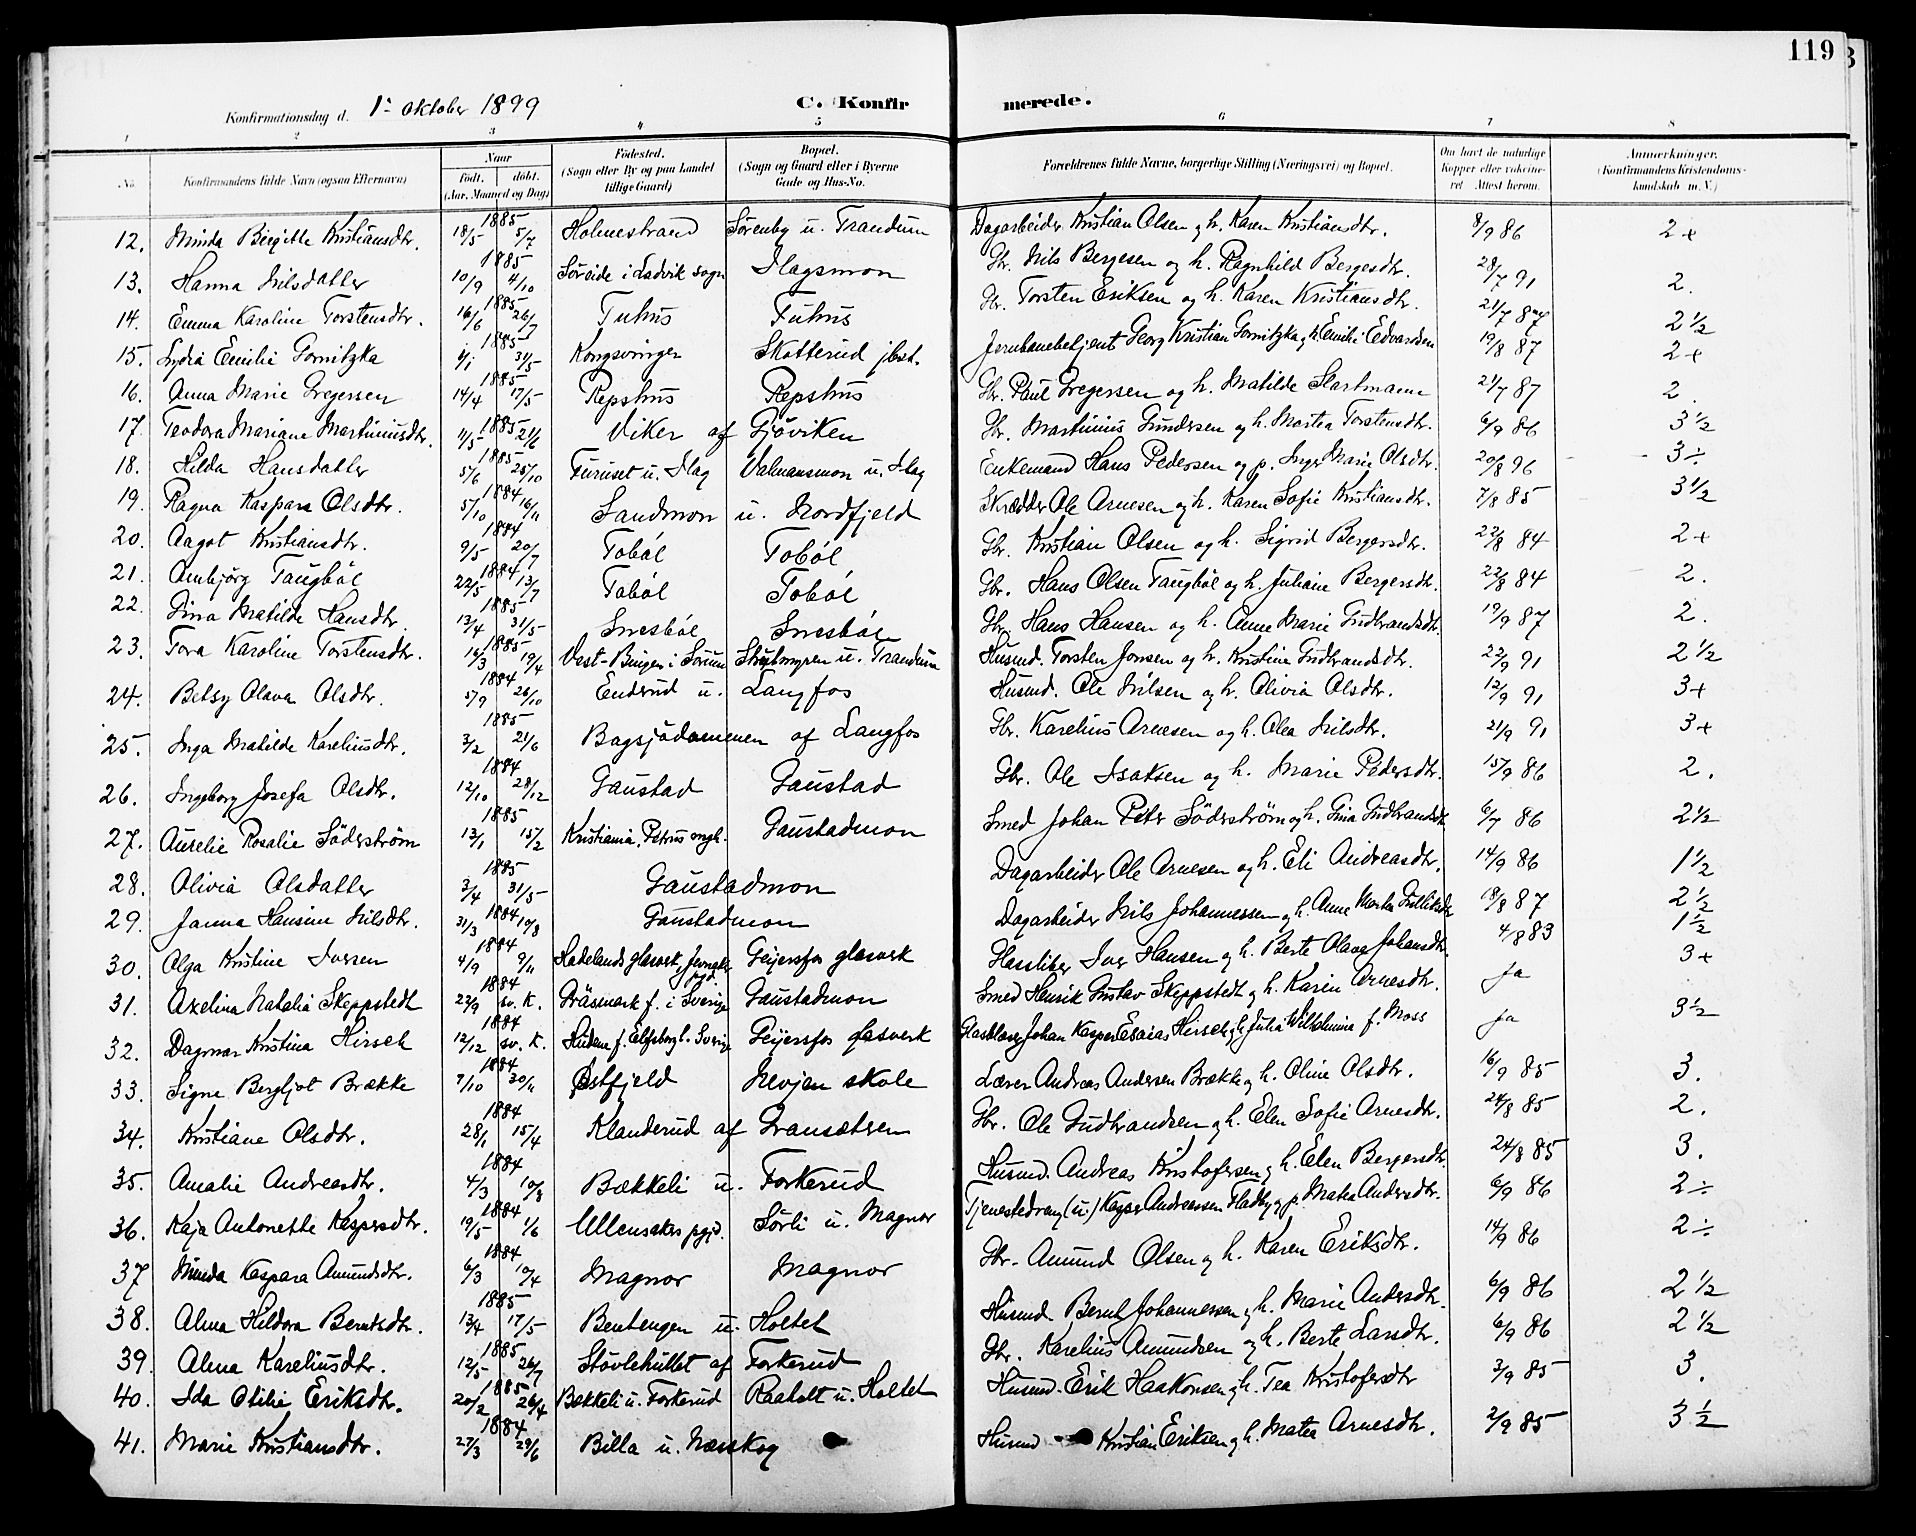 119
Konfirmationsdag d. 1ste Oktober 1899 C. Konfirmerede.
1 2 3 4 5 6 7 8
No. Konfirmandens fulde Navn (ogsaa Efternavn) Naar født. døbt. (Aar, Maaned og Dag) Fødested. (Sogn eller By og paa Landet tillige Gaard) Bopæl. (Sogn og Gaard eller i Byerne Gade og Hus-No. Forældrenes fulde Navne, borgerlige Stilling (Næringsvei) og Bopæl. Om havt de naturlige Kopper eller vakcineret Attest herom. Anmærkninger. (Konfirmandens Kristendomskundskab m. V.)
12. Minda Birgitte Kristiansdtr. 1885 18/5 5/7 Holmestrand Sørenby u. Trandum Dagarbeider Kristian Olsen og h. Karen Kristiansdtr. 8/9 86 2+
13. Hanna Nilsdatter 1885 10/9 4/10 Søreide i Ladvik sogn Flagsmon Gbr. Nils Bergesen og h. Ragnhild Bergesdtr. 28/7 91 2.
14. Emma Karoline Torstensdtr. 1885 16/6 26/7 Tuhus Tuhus Gbr. Torsten Eriksen og h. Karen Kristiansdtr. 21/7 87 2 1/2
15. Lydia Emilie Gornitzka 1885 4/1 31/5 Kongsvinger Skotterud jbst. Jernbanebetjent Georg Kristian Gornitzka og h. Emilie Edvardsen 19/8 87 2+
16. Anna Marie Gregersen 1885 14/4 17/5 Repshus Repshus Gbr. Paul Gregersen og h. Matilde Slartmann 21/7 87 2.
17. Teodora Mariane Martiniusdtr. 1885 11/5 21/6 Viker af Gjøviken Gbr. Martinius Gundersen og h. Martea Torstensdtr. 6/9 86 3 1/2
18. Hilda Hansdatter 1885 5/6 25/10 Furuset u. Flag Valmansmon u. Flag Enkemand Hans Pedersen og p. Inger Marie Olsdtr. 20/8 96 3÷
19. Ragna Kaspara Olsdtr. 1884 5/10 16/11 Sandmon u. Nordfjeld Skrædder Ole Arnesen og h. Karen Sofie Kristiansdtr. 7/8 85 3 1/2
20. Aagot Kristiansdtr. 1884 9/5 20/7 Tobøl Tobøl Gbr. Kristian Olsen og h. Sigrid Bergersdtr. 22/8 84 2+
21. Ambjørg Taugbøl 1884 22/5 13/7 Tobøl Tobøl Gbr. Hans Olsen Taugbøl og h. Juliane Bergersdtr. 22/8 84 2.
22. Dina Matilde Hansdtr. 1885 13/4 31/5 Snesbøl Snesbøl Gbr. Hans Hansen og h. Anne Marie Gudbrandsdtr. 19/9 87 2.
23. Tora Karoline Torstensdtr. 1885 16/3 19/4 Vest-Bingen i Sørum Skulmyren u. Trandum Husmd. Torsten Jonsen og h. Kristine Gudbrandsdtr. 22/9 91 2 1/2
24. Betsy Olava Olsdtr. 1884 5/9 26/10 Enderud u. Langfos Husmd. Ole Nilsen og h. Olivia Olsdtr. 12/9 91 3+
25. Inga Matilde Kareliusdtr. 1885 3/2 21/6 Bagsjødammen af Langfos Gbr. Karelius Arnesen og h. Olea Nilsdtr. 21/9 91 3+
26. Ingeborg Josefa Olsdtr. 1884 12/10 28/12 Gaustad Gaustad Gbr. Ole Isaksen og h. Marie Pedersdtr. 15/9 86 2.
27. Aurelie Rosalie Söderström 1885 13/1 15/2 Kristiania, Petrus mgh. Gaustadmon Smed Johan Peter Söderström og h. Gina Gudbrandsdtr. 6/7 86 2 1/2
28. Olivia Olsdatter 1885 3/4 31/5 Gaustadmon Dagarbeider Ole Arnesen og h. Eli Andreasdtr. 14/9 86 1 1/2
29. Janna Hansine Nilsdtr. 1884 31/3 10/8 Gaustadmon Dagarbeider Nils Johannessen og h. Anne Martea 18/8 87 2 1/2
30. Olga Kristine Iversen 1884 4/9 9/11 Hadelands glasverk, Jevnaker pgd. Geijersfos glasverk Iver Hansen og h. Berte Olava Johansdtr. 4/8 83 1 1/2
31. Axelina Natalia Skeppstedt 1884 22/9 sv. K. Gräsmark f. i Sverige Gaustadmon Smed Henrik Gustav Skeppstedt og h. Karin Arnesdtr. Ja 3+
32. Dagmar Kristina Hirsch 1884 12/12 sv. K. Hudene f. Elfsborg l. Sverige Geijersfos glasverk Glasblaser Johan Kasper Esaias Hirsch og h. Julia Wilhelmine f. Moss Ja 3 1/2
33. Signe Bergljot Brække 1884 7/10 30/11 Østfjeld Nevjen skole Lærer Andreas Andersen Brække og h. Oline Olsdtr. 16/9 85 3.
34. Kristiane Olsdtr. 1884 28/1 15/4 Klanderud af Gransætren Gbr. Ole Gudbrandsen og h. Elen Sofie Arnesdtr. 24/8 85 2.
35. Amalie Andreasdtr. 1884 4/3 10/8 Bækkeli u. Forkerud Husmd. Andreas Kristofersen og h. Elen Bergersdtr. 24/8 85 3.
36. Kaja Antonette Kaspersdtr. 1884 19/5 1/6 Ullensaker pgjd. Sørli u. Magnor Tjenestedreng (u) Kasper Andreassen Fladby og p. Matea Andersdtr. 6/9 86 2÷
37 Minda Kaspara Amundsdtr. 1884 6/3 10/4 Magnor Magnor Gbr. Amund Olsen og h. Karen Eriksdtr. 14/9 86 2÷
38. Alma Heldora Berntsdtr. 1885 13/4 17/5 Bentengen u. Holtet Husmd. Bernt Johannessen og h. Marie Andersdtr. 6/9 86 2 1/2
39. Alma Kareliusdtr. 1885 12/5 26/7 Støvlehullet af Forkerud Gbr. Karelius Amundsen og h. Berte Larsdtr. 6/9 86 2 1/2
40. Ida Otilie Eriksdtr. 1885 20/2 26/4 Bækkeli u. Forkerud Raaholt u. Holtet Husmd. Erik Haakonsen og h. Tea Kristofersdtr 3/9 85 3.
41. Marie Kristiansdtr. 1884 27/3 29/6 Billa u. Næsskog Husmd Kristian Eriksen og h. Matea Arnesdtr. 2/9 85 3 1/2